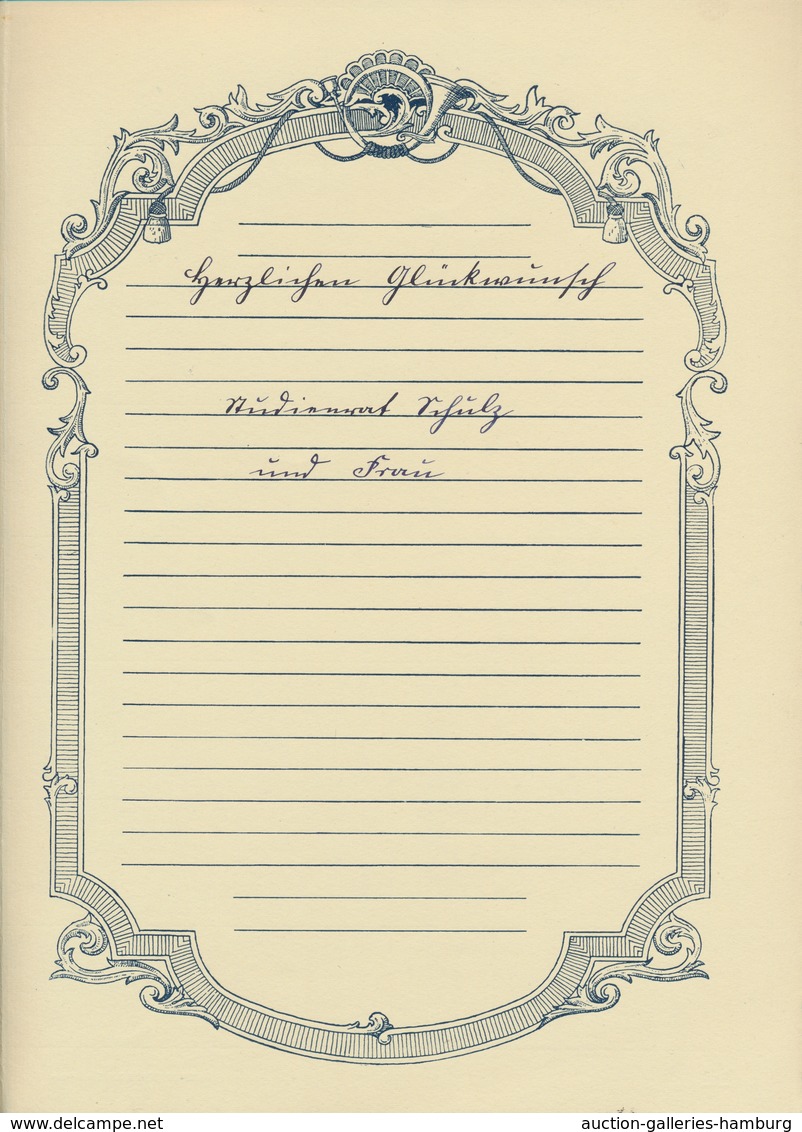 Herzlichen Glückwunsch
Studienrat Schulz
und Frau
www.delcampe.net
auction-galleries-hamburg